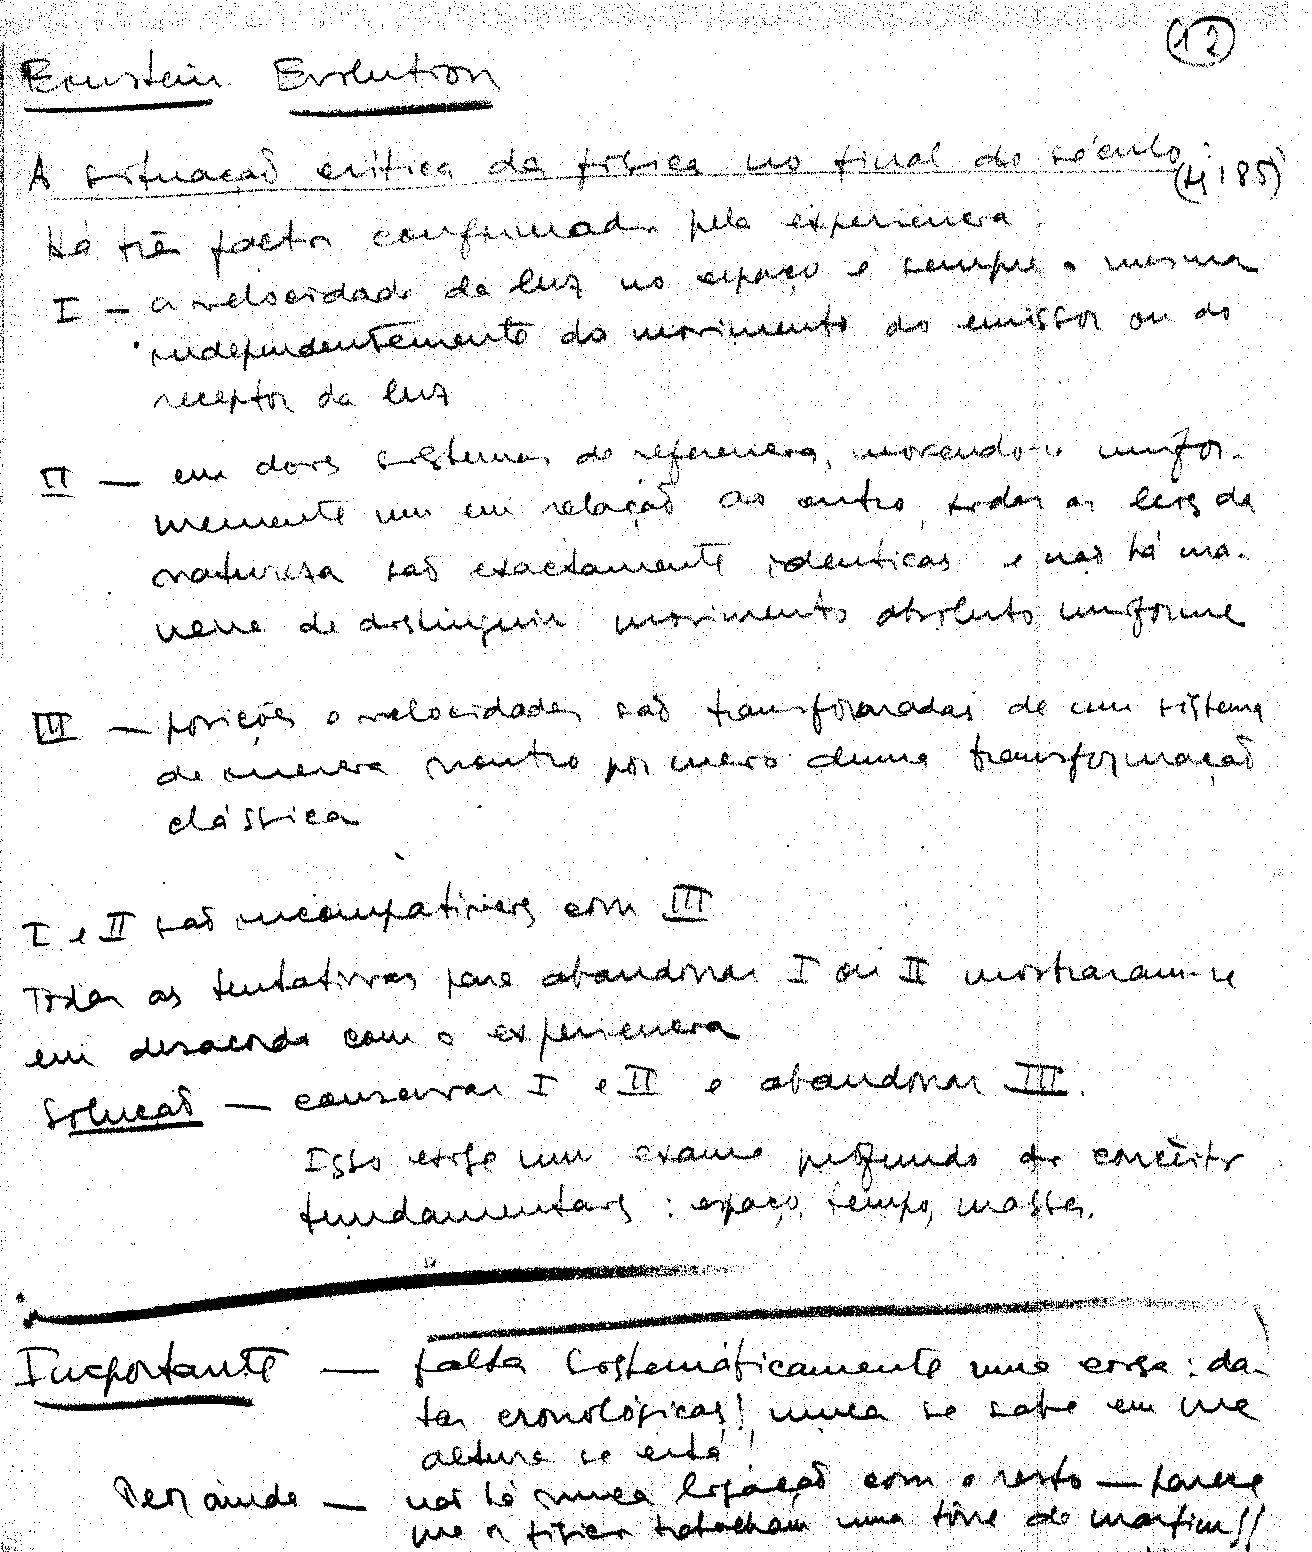 12
Einstein Evolution
A situação crítica da física no final do século:
(pg 185)
Há três factos confirmados pela experiencia:
I — a velocidade da luz no espaço é sempre a mesma
independentemente do movimento do emissor ou do
receptor da luz
II — em dois sistemas de referencia, movendo-se unifor-
memente um em relação ao outro, todas as leis da
natureza são exactamente identicas e não há ma-
neira de distinguir movimento absoluto uniforme
III — posições e velocidades são transformadas de um sistema
de inercia noutro por meio duma transformação
clássica
I e II são incompativeis com III
Todas as tentativas para abandonar I ou II mostraram-se
em desacordo com a experiencia
Solução — conservar I e II e abandonar III.
Isso exige um exame profundo dos conceitos
fundamentais: espaço, tempo, massa.
Importante — falta sistemáticamente uma coisa: da-
tas cronológicas! nunca se sabe em que
altura se está!
Pior ainda — não há nunca ligação com o resto — parece
que os físicos trabalham numa tôrre de marfim!!